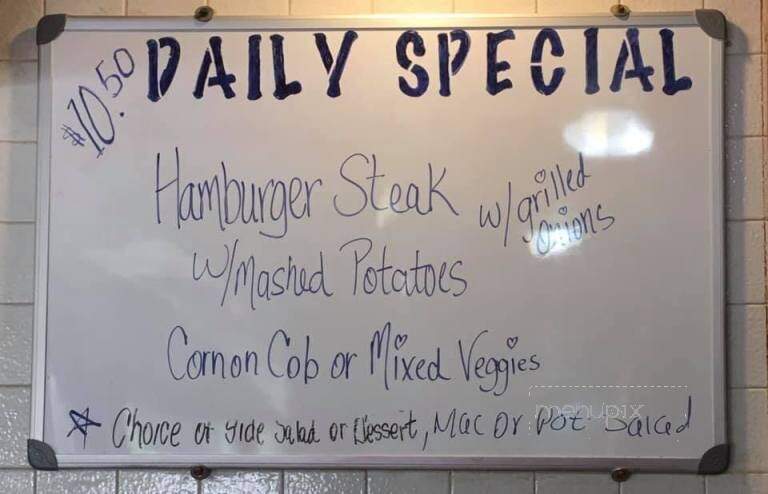 $10.50 DAILY SPECIAL
Hamburger Steak w/grilled onions
w/Mashed Potatoes
Corn on Cob or Mixed Veggies
menupix
Choice of side salad or Dessert, Mac or Pot Salad